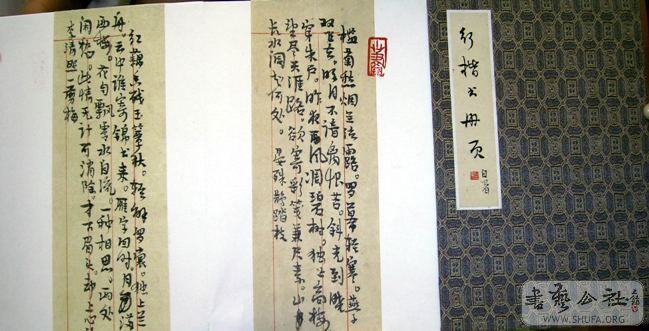 行楷书册页
自署
槛菊愁烟兰泣露。罗幕轻寒。燕子
双飞去。明月不谙离恨苦。斜光到晓
穿朱户。昨夜西风凋碧树。独上高楼
望尽天涯路。欲寄彩笺兼尺素。山
长水阔知何处。晏殊鹊踏枝
红藕香残玉簟秋。轻解罗裳。独上兰
舟。云中谁寄锦书来。雁字回时。月满
西楼。花自飘零水自流。一种相思。两处
闲愁。此情无计可消除。才下眉头却上心
李清照一剪梅
書藝公社
WWW.SHUFA.ORG